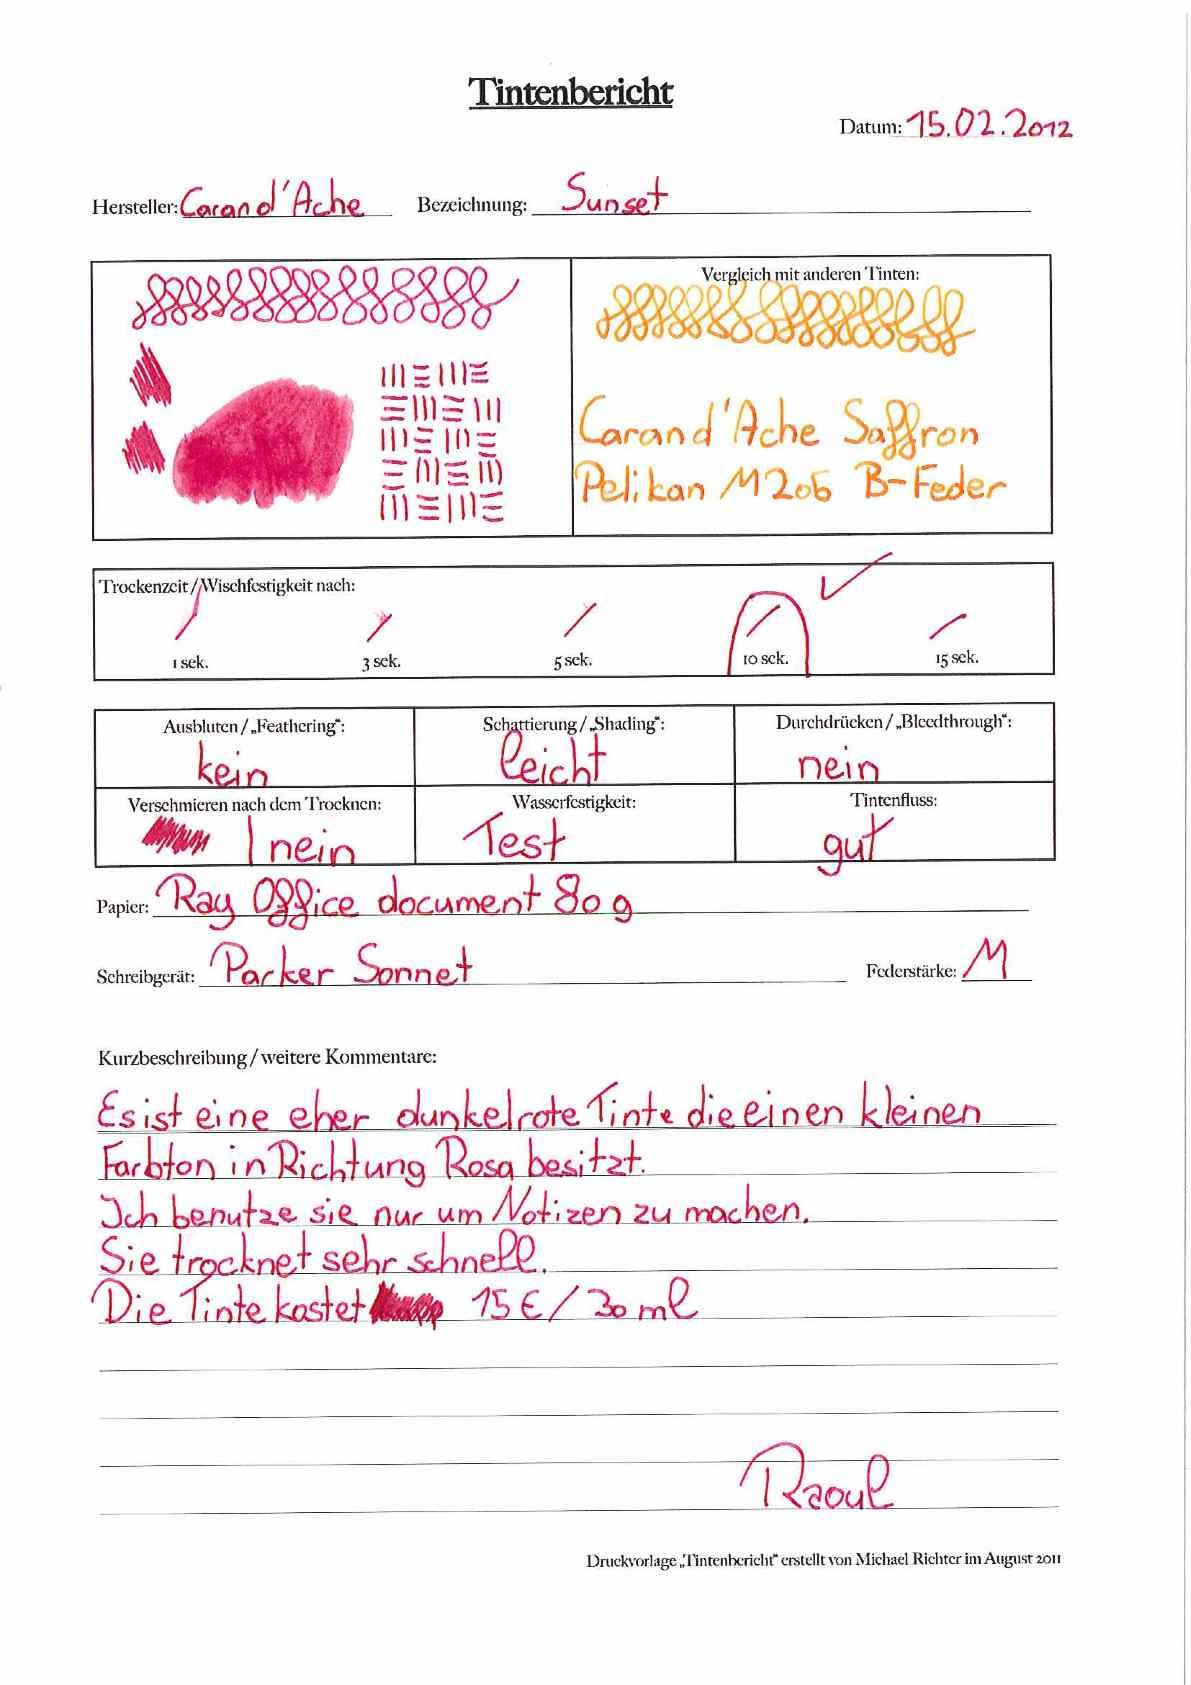 Tintenbericht
Datum: 15.02.2012
Hersteller: Caran d'Ache Bezeichnung: Sunset
Vergleich mit anderen Tinten:
Caran d'Ache Saffron
Pelikan M205 B-Feder
Trockenzeit / Wischfestigkeit nach:
1 sek. 3 sek. 5 sek. 10 sek. 15 sek.
Ausbluten / „Feathering“: Schattierung / „Shading“: Durchdrücken / „Bleedthrough“:
kein leicht nein
Verschmieren nach dem Trocknen: Wasserfestigkeit: Tintenfluss:
nein Test gut
Papier: Ray Office document 80 g
Schreibgerät: Parker Sonnet Federstärke: M
Kurzbeschreibung / weitere Kommentare:
Es ist eine eher dunkelrote Tinte die einen kleinen
Farbton in Richtung Rosa besitzt.
Ich benutze sie nur um Notizen zu machen.
Sie trocknet sehr schnell.
Die Tinte kostet 15 € / 30 ml
Raoul
Druckvorlage „Tintenbericht“ erstellt von Michael Richter im August 2011